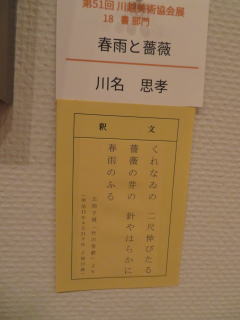 第51回 川越美術協会展
18 書部門
春雨と薔薇
川名 思孝
釈文
くれなゐの 二尺伸びたる
薔薇の芽の 針やはらかに
春雨のふる